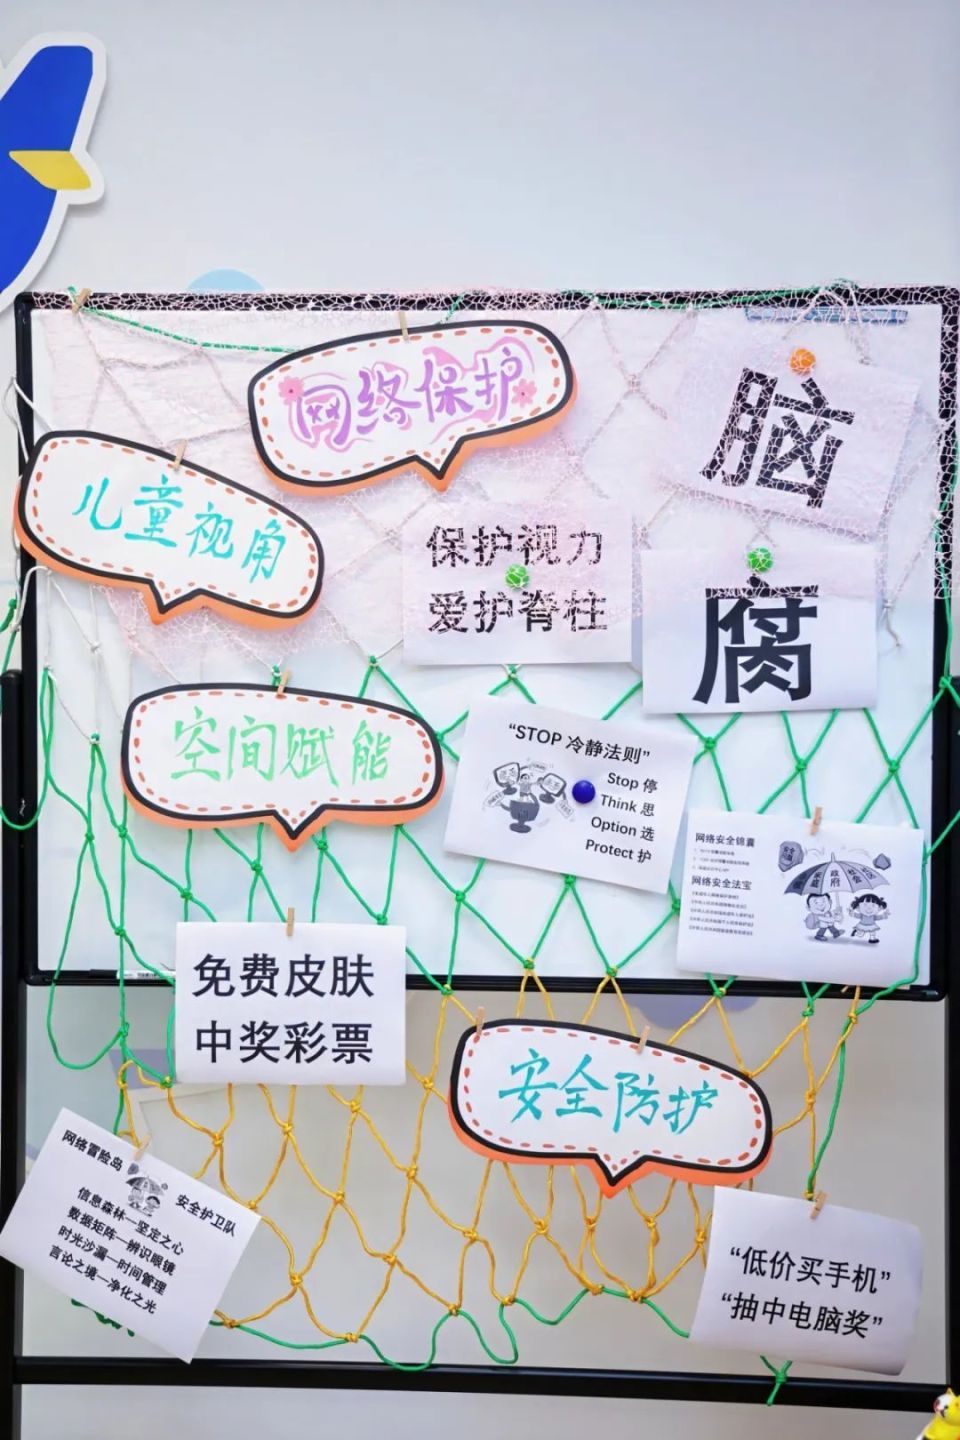 网络保护
儿童视角
脑
保护视力
爱护脊柱
腐
空间赋能
“STOP 冷静法则”
Stop 停
Think 思
Option 选
Protect 护
网络安全锦囊
网络安全法宝
家庭
政府
社会
免费皮肤
中奖彩票
安全防护
网络冒险岛
安全护卫队
信息森林—坚定之心
数据矩阵—辨识眼镜
时光沙漏—时间管理
言论之境—净化之光
“低价买手机”
“抽中电脑奖”